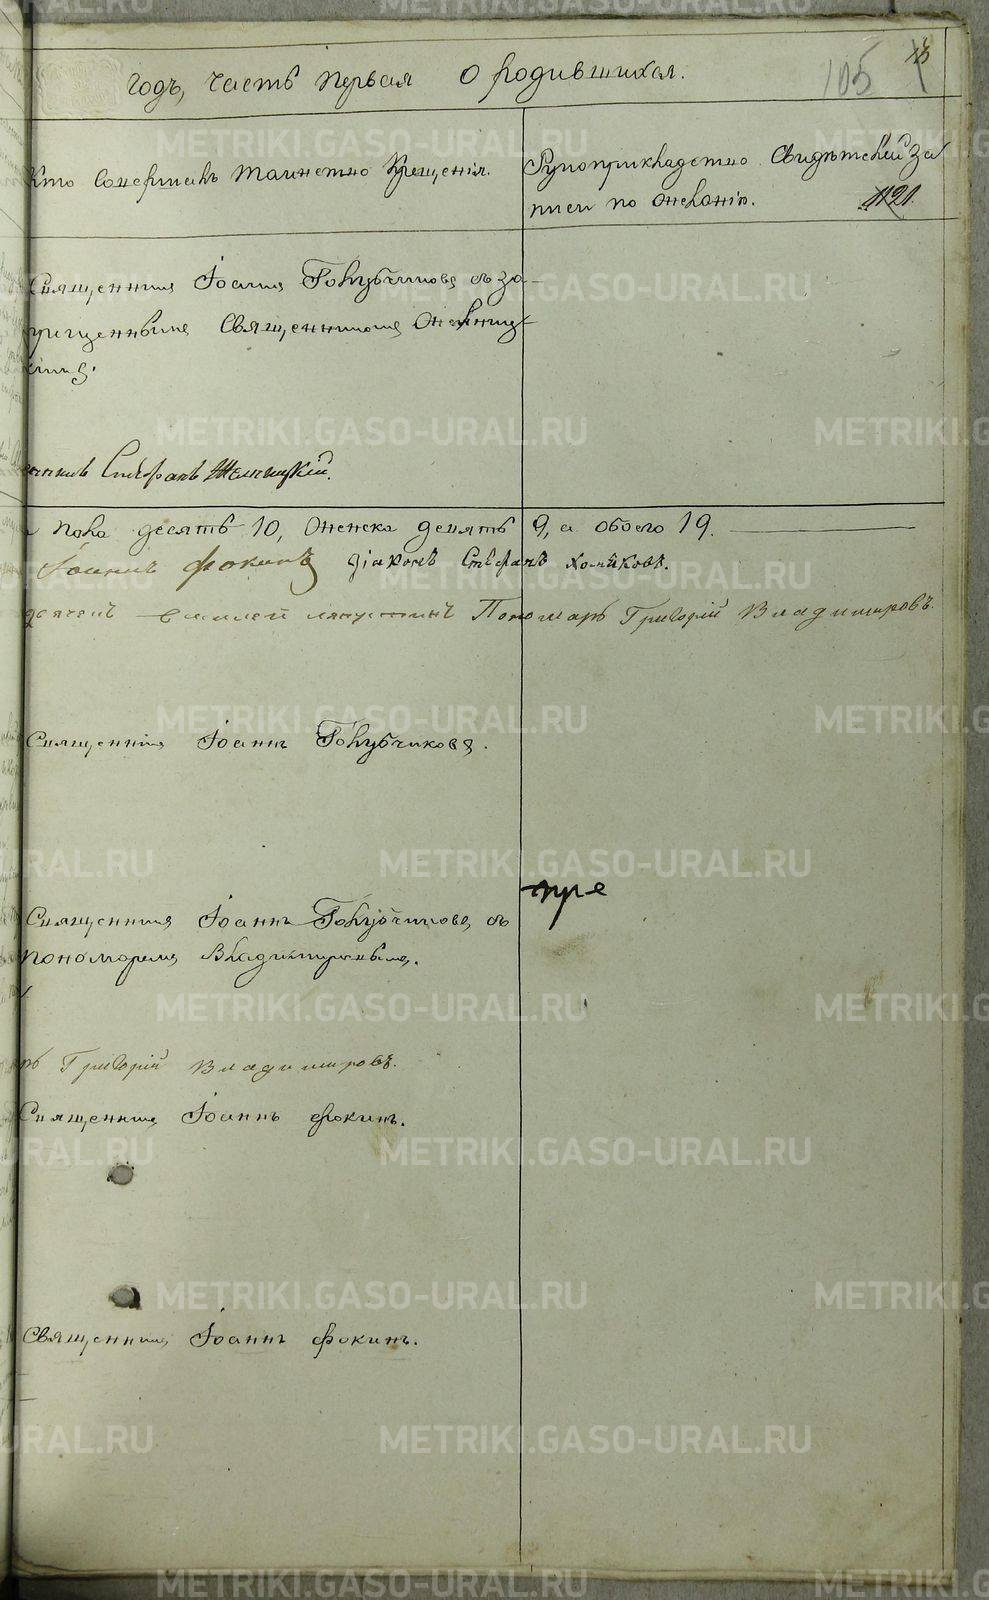 годъ, часть первая О родившихся.
105
Кто совершалъ таинство Крещенія.
Рукоприкладство свидѣтелей за-
писи по желанію.
1121.
Священникъ Іоаннъ Голубчиковъ съ за-
прещеннымъ Священникомъ
Стефанъ
пола десять 10, женска девять 9, а обоего 19.
Іоаннъ Фокинъ діаконъ Стефанъ Хомяковъ.
Пономарь Григорій Владимировъ.
Священникъ Іоаннъ Голубчиковъ.
Священникъ Іоаннъ Голубчиковъ, съ
пономаремъ Владимировымъ.
Григорій Владимировъ.
Священникъ Іоаннъ Фокинъ.
Священникъ Іоаннъ Фокинъ.
METRIKI.GASO-URAL.RU